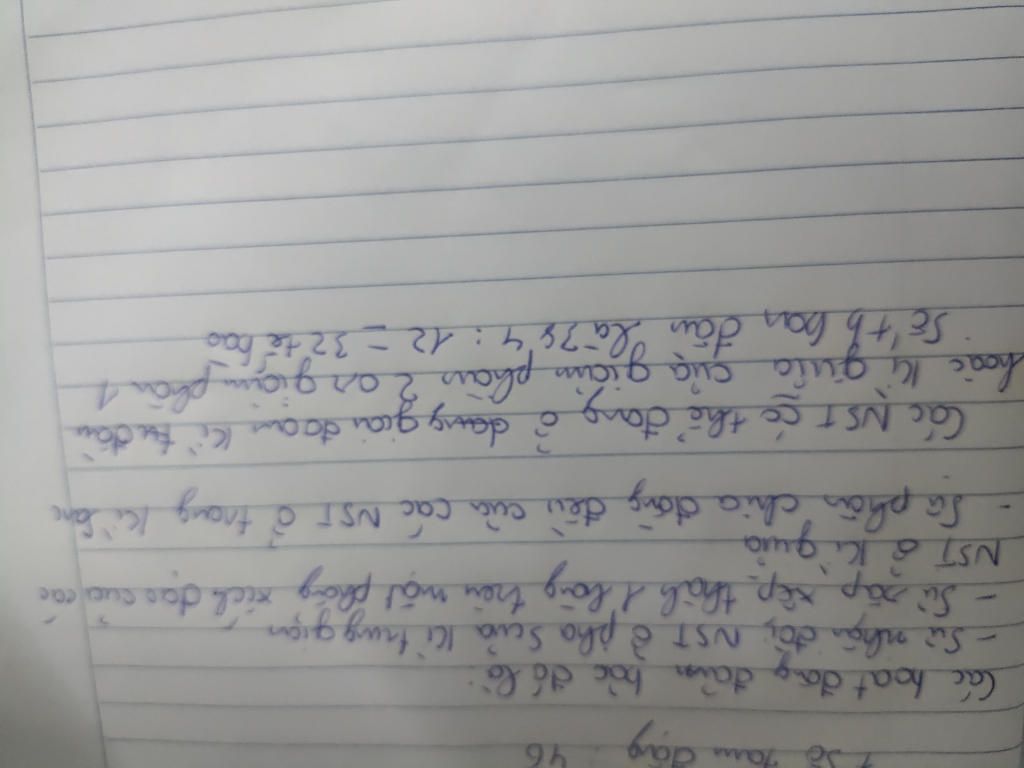 + Số tâm động : 46
Các hoạt động đảm bảo đó là:
- Sự nhân đôi NST ở pha S của kì trung gian
- Sự sắp xếp thành 1 hàng trên mặt phẳng xích đạo của các
NST ở kì giữa
- Sự phân chia đồng đều của các NST ở trong kì sau
Các NST có thể đang ở dạng giai đoạn kì đầu
hoặc kì giữa của giảm phân 2 or giảm phân 1
Số tb ban đầu là 384 : 12 = 32 tế bào